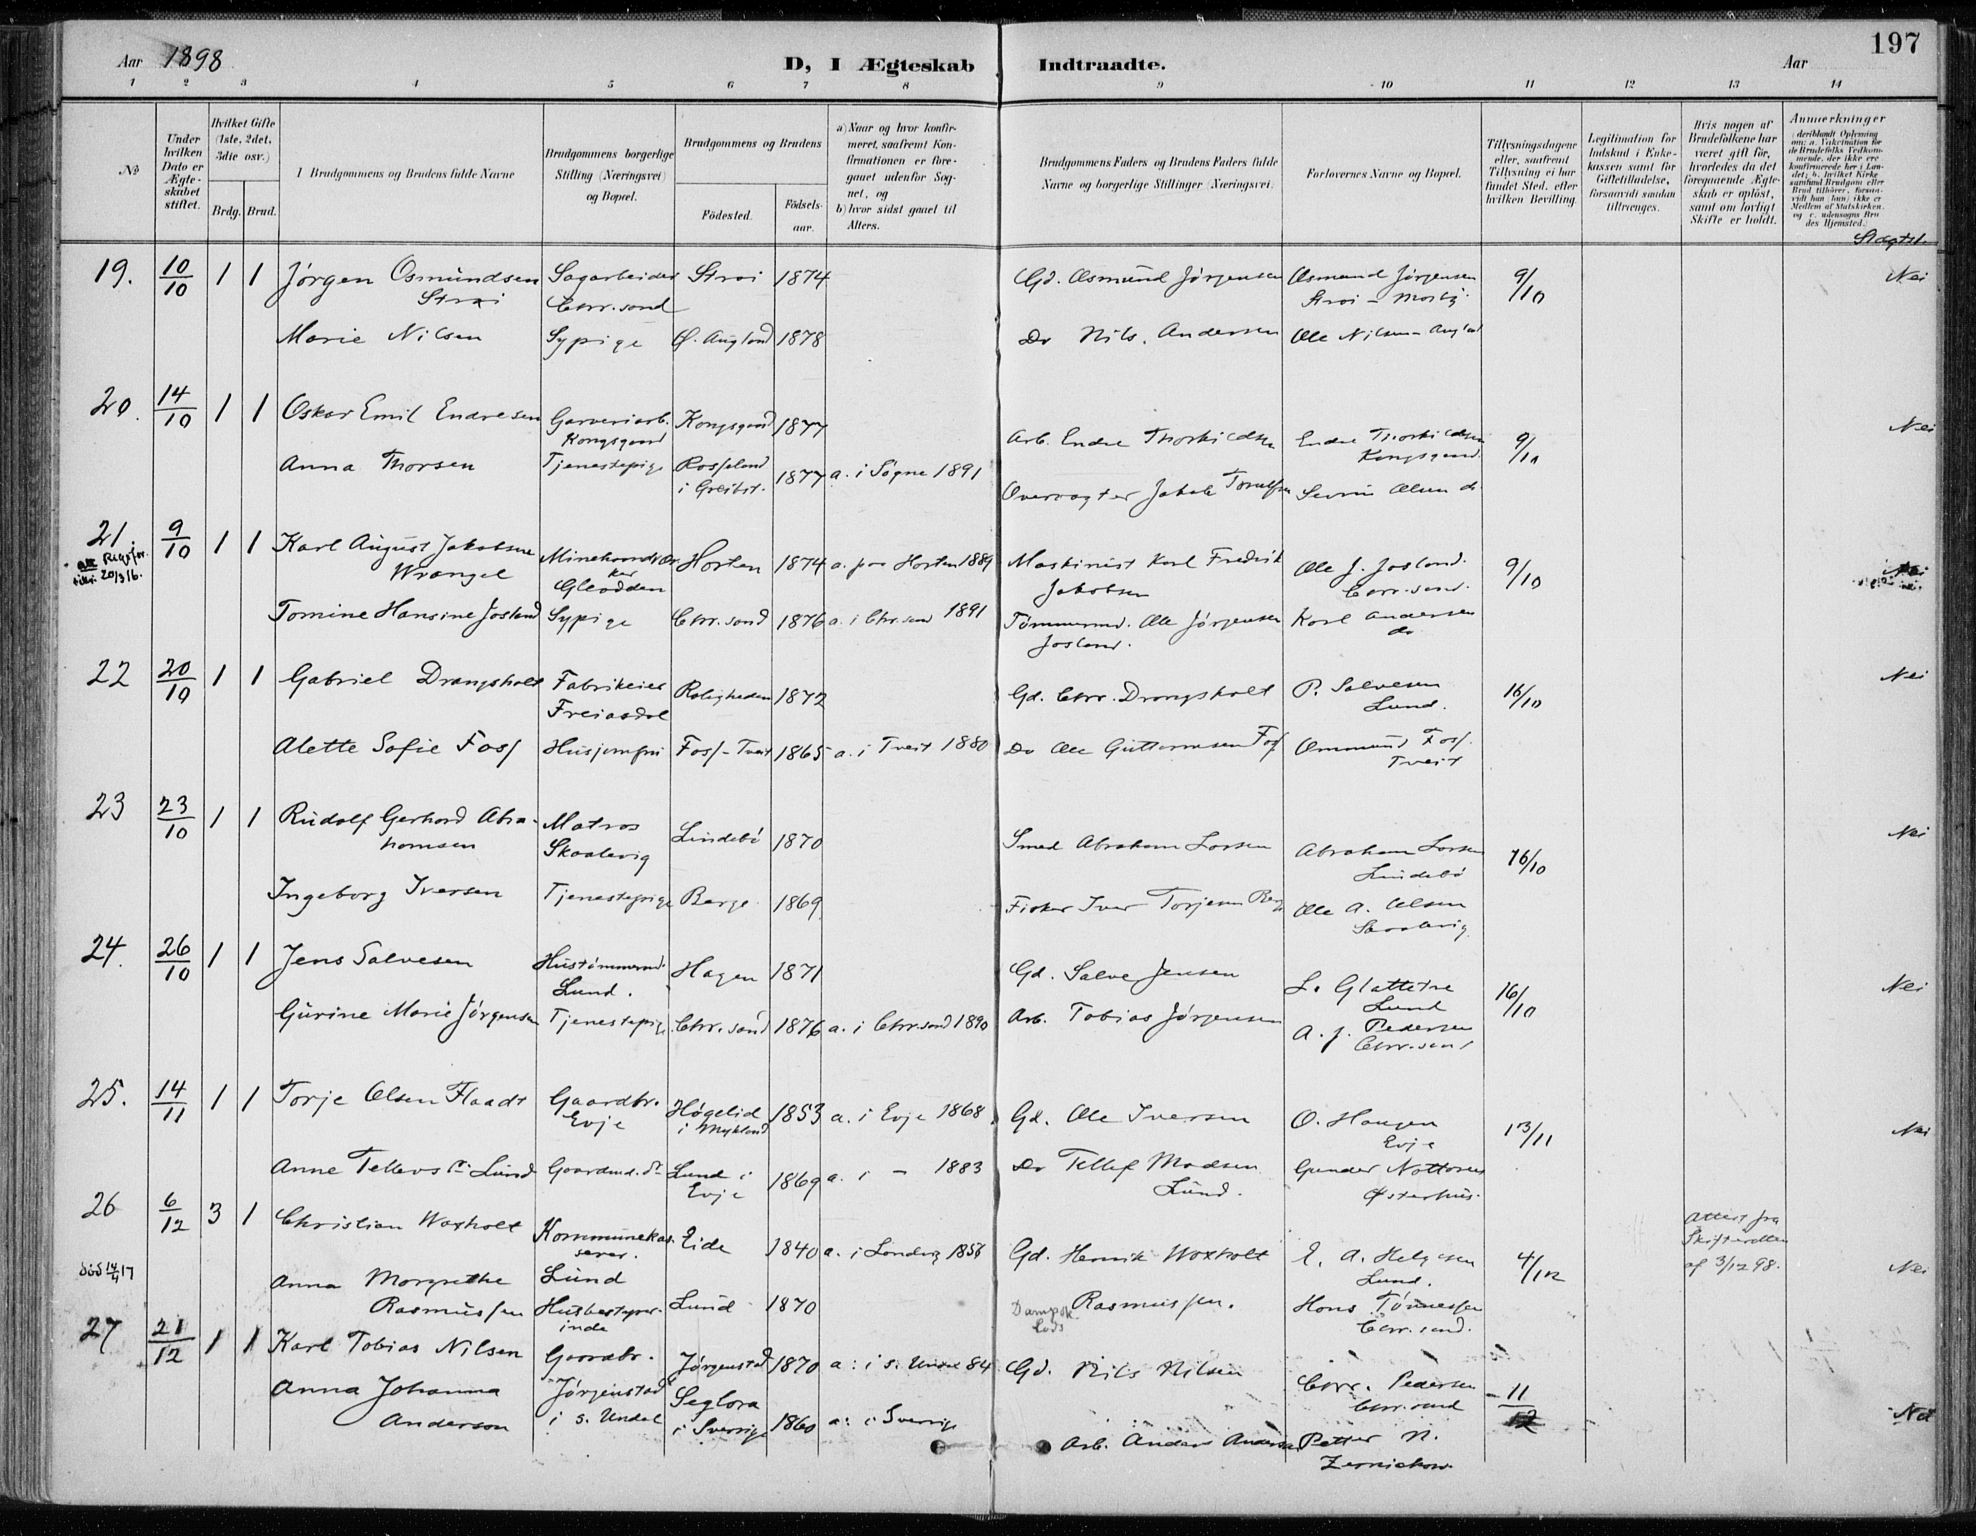 197
Aar 1898
D, I Ægteskab Indtraadte.
Aar
1 2 3 4 5 6 7 8 9 10 11 12 13 14
No
Under hvilken Dato er Ægteskabet stiftet.
Hvilket Gifte (1ste, 2det, 3die osv.)
Brdg. Brud.
I Brudgommens og Brudens fulde Navne
Brudgommens borgerlige Stilling (Næringsvei) og Bopæl.
Brudgommens og Brudens
Födested.
Födselsaar.
a) Naar og hvor konfirmeret, saafremt Konfirmationen er foregaaet udenfor Sognet, og
b) hvor sidst gaael til Alters.
Brudgommens Faders og Brudens Faders fulde Navne og borgerlige Stillinger (Næringsvei).
Forlovernes Navne og Bopæl.
Tillysningsdagene eller, saafremt Tillysning ei har fundet Sted, efter hvilken Bevilling.
Legitimation for Indskud i Enkekassen samt for Giftetilladelse, forsaavidt saadan tiltrænges.
Hvis nogen af Brudefolkene har været gift för, hvorledes da det foregaaende Ægteskab er oplöst, samt om lovligt Skifte er holdt.
Anmærkninger
Slægtsk.
19. 10/10 1 1 Jørgen Osmundsen Sagarbeider Stroi 1874 Gd. Osmund Jørgensen Osmund Jørgensen 9/10 Nei
Stroi Chr.sand Stroi - Mosby.
Marie Nilsen Sypige Ø. Augland 1878 Do Nils Andersen Ole Nilsen - Augland
20. 14/10 1 1 Oskar Emil Endresen Garveriarb. Kongsgaard 1877 Arb. Endre Thorkildsen Endre Thorkildsen 9/10 Nei
Kongsgaard Kongsgaard
Anna Thorsen Tjenestepige Rosseland 1877 a. i Søgne 1891 Overvagter Jakob Severin Olsen do
i Greibst.
21. 9/10 1 1 Karl August Jakobsen Minehaandværker Horten 1874 a. paa Horten 1889 Maskinist Karl Fredrik Ole J. Josland 9/10 Nei
20/3 16.
Wrangel Gleodden Jakobsen Chr.sand
Tomine Hansine Josland Sypige Chr.sand 1876 a. i Chr.sand 1891 Tømmermd. Ole Jørgensen Karl Andersen
Josland. do
22 20/10 1 1 Gabriel Drangsholt Fabrikeier Roligheden 1872 Gd. Chr. Drangsholt P. Salvesen 16/10 Nei
Freiasdal Lund.
Alette Sofie Foss Husjomfru Foss - Tveit 1865 a. i Tveit 1880 Do Ole Guttormsen Foss Ommund Foss
Tveit
23 23/10 1 1 Rudolf Gerhard Abra- Matros Lindebø 1870 Smed Abraham Larsen Abraham Larsen 16/10 Nei
hamsen Skaalevig Lindebø
Ingeborg Iversen Tjenestepige Berge 1869 Fisker Iver Torjesen Berge Ole A. Olsen
Skaalevig
24. 26/10 1 1 Jens Salvesen Hustømmermd. Hagen 1871 Gd. Salve Jensen L. Glattetre 16/10 Nei
Lund. Lund
Gurine Marie Jørgensen Tjenestepige Chr.sand 1876 a. i Chr.sand 1890 Arb. Tobias Jørgensen A. J. Pedersen
Chr.sand
25. 14/11 1 1 Torje Olsen Flaadt Gaardbr. Høgelid 1853 a. i Evje 1868 Gd. Ole Iversen O. Haugen 13/11 Nei
Evje i Mykland Evje
Anne Tellevs Dr. Lund Gaardmd. Dr Lund i 1869 a. i - 1883 Do Tellef Madsen Gunder
Evje Lund. Østerhus.
26 6/12 3 1 Christian Waxholt Kommunekas- Eide 1840 a. i Landvig 1856 Gd. Henrik Woxholt E. A. Helgesen 4/12 Attest fra
serer. Lund. Skifteretten
af 3/12 98. Nei
død 17
Lund
Anna Margrethe
Rasmussen Husbestyrer- Lund 1870 Dampsk. Rasmussen. Hans Tønnessen
inde Lods Chr.sand.
27 21/12 1 1 Karl Tobias Nilsen Gaardbr. Jørgenstad 1870 a: i S. Undal 84 Gd. Nils Nilsen Chr. Pedersen 11/12
Jørgenstad Chr.sand
Anna Johanna i S. Undal Seglora
Anderson i Sverrige 1860 a: i Sverrige Arb. Anders Anderson Petter N. Nei
Zernichow